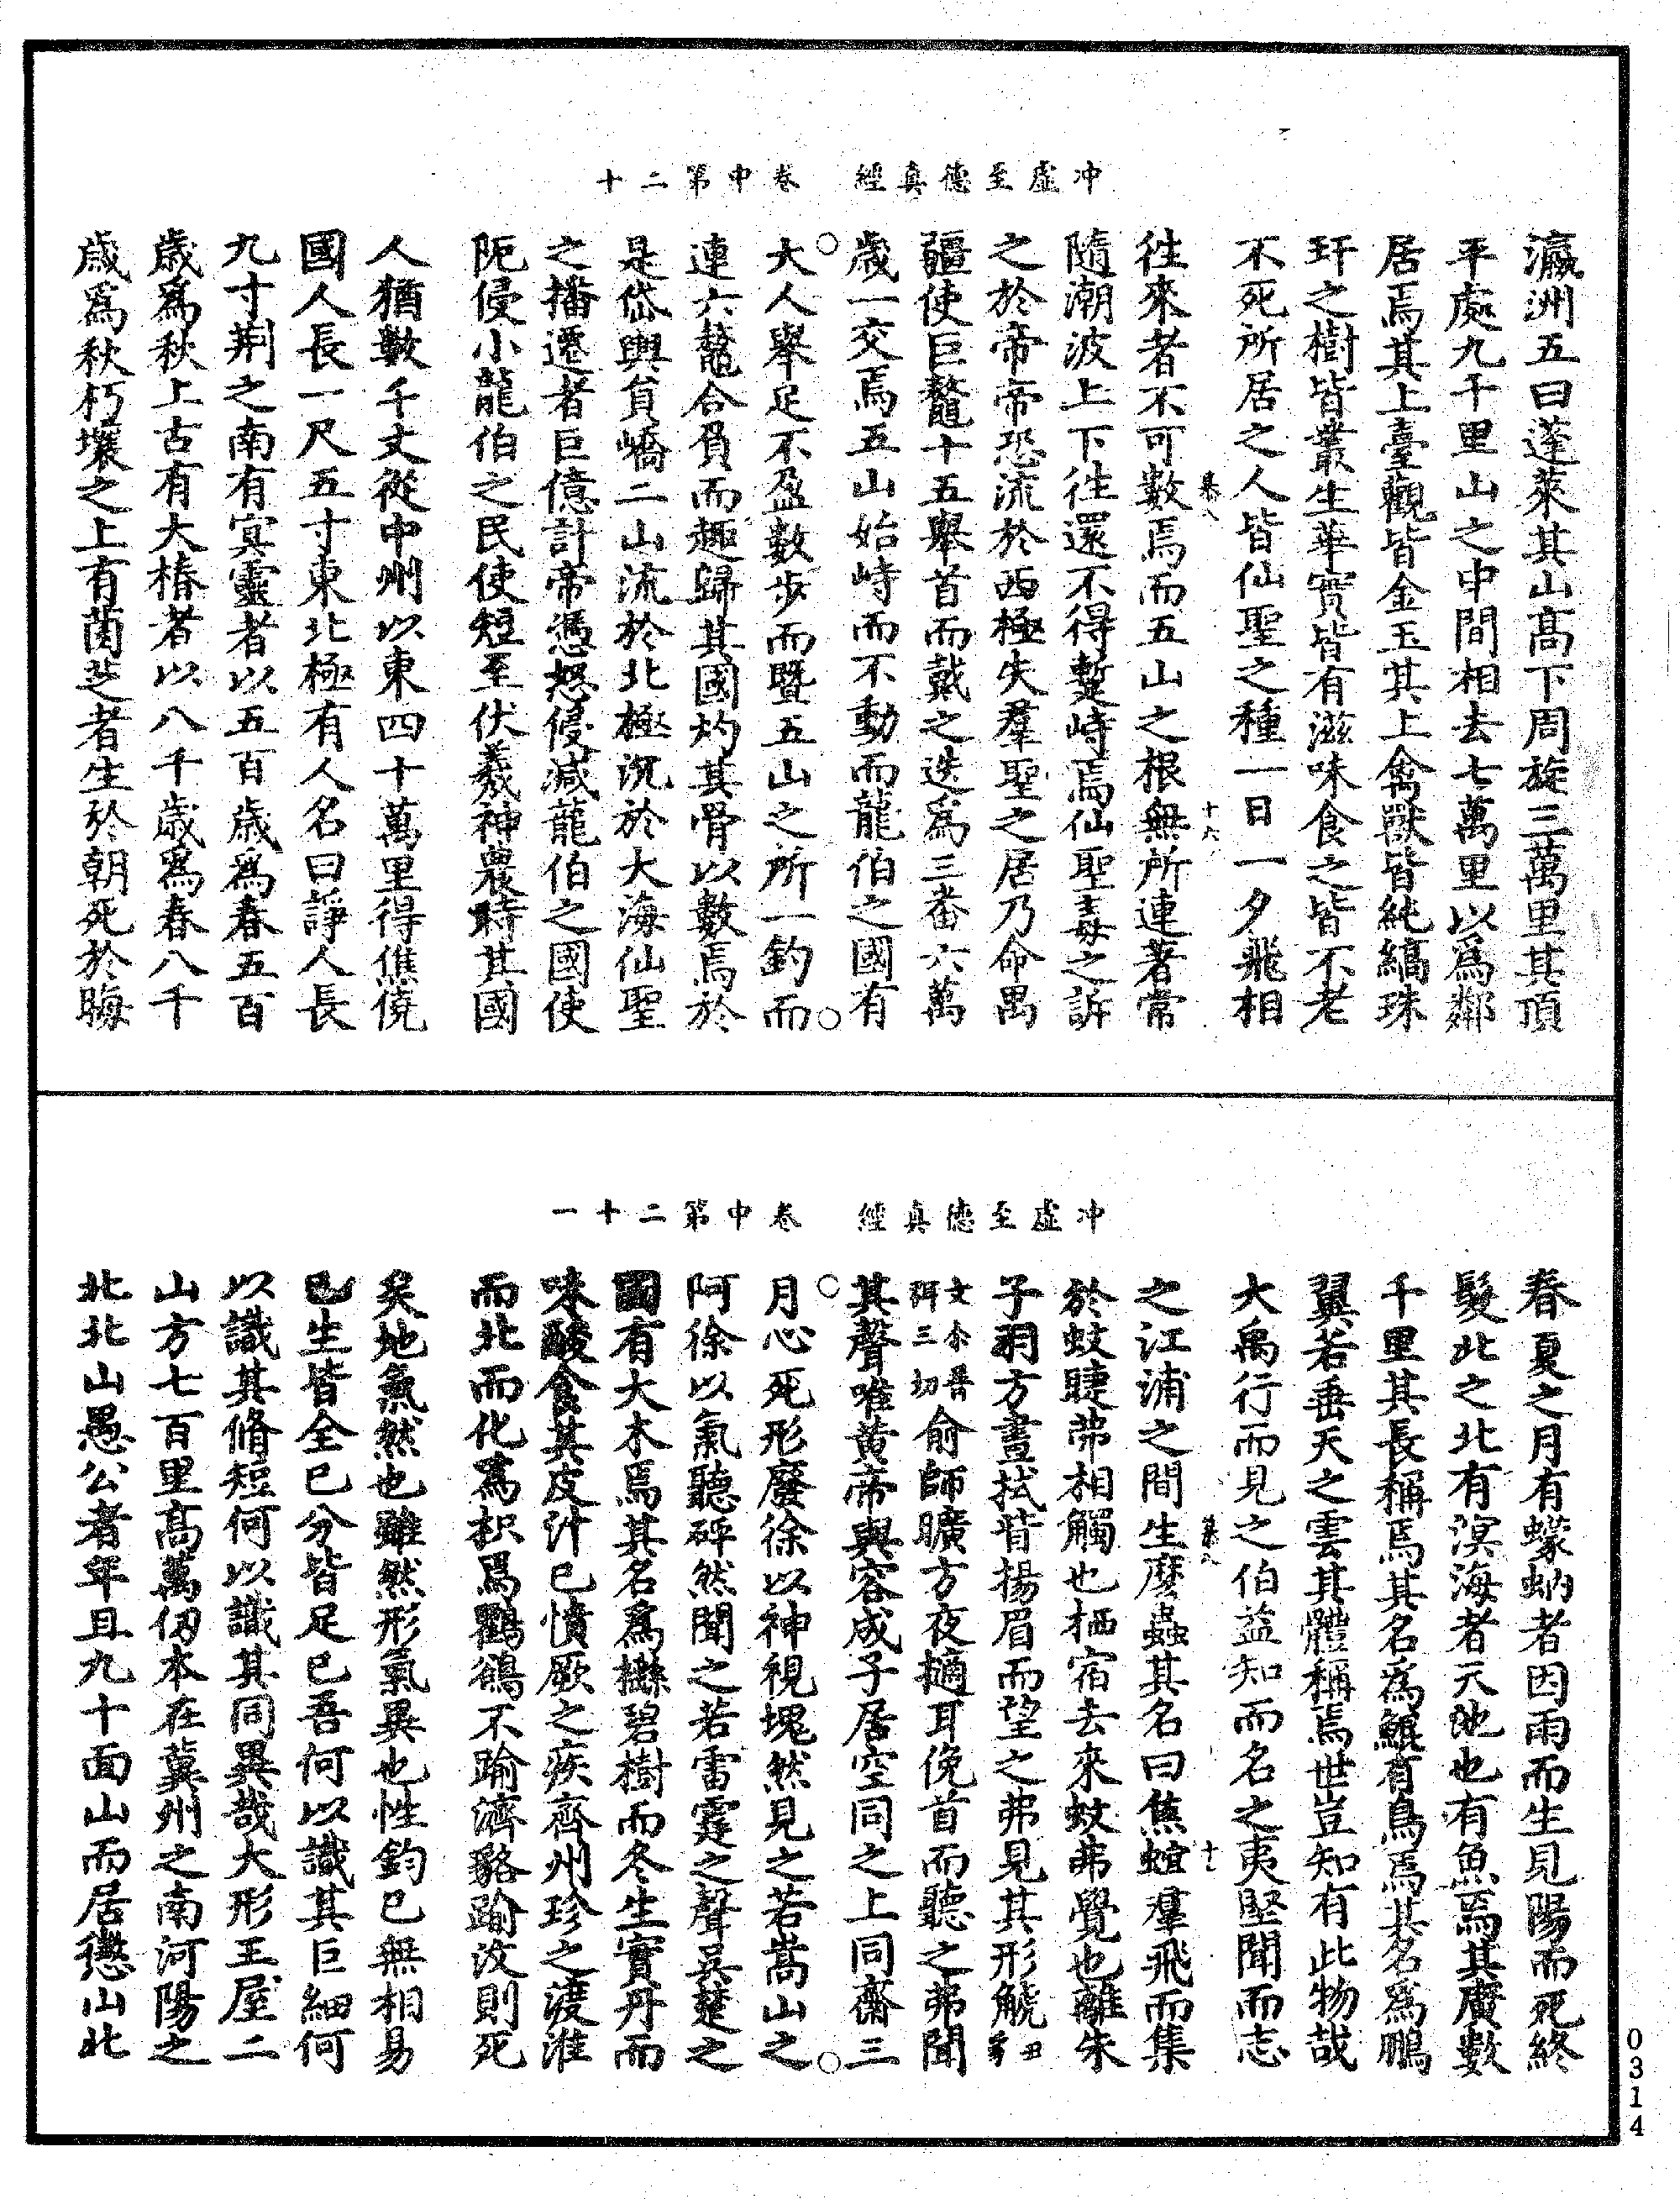 冲虛至德真經　卷中第二十
瀛洲五曰蓬萊其山高下周旋三萬里其頂
平處九千里山之中間相去七萬里以爲鄰
居焉其上臺觀皆金玉其上禽獸皆純縞珠
玕之樹皆叢生華實皆有滋味食之皆不老
不死所居之人皆仙聖之種一日一夕飛相
十六
往來者不可數焉而五山之根無所連著常
隨潮波上下往還不得蹔峙焉仙聖毒之訴
之於帝帝恐流於西極失羣聖之居乃命禺
疆使巨鼇十五舉首而戴之迭爲三番六萬
歲一交焉五山始峙而不動而龍伯之國有
大人舉足不盈數步而暨五山之所一釣而
連六鼇合負而趣歸其國灼其骨以數焉於
是岱輿員嶠二山流於北極沉於大海仙聖
之播遷者巨億計帝憑怒侵減龍伯之國使
阨侵小龍伯之民使短至伏羲神農時其國
人猶數千丈從中州以東四十萬里得僬僥
國人長一尺五寸東北極有人名曰諍人長
九寸荆之南有冥靈者以五百歲爲春五百
歲爲秋上古有大椿者以八千歲爲春八千
歲爲秋朽壤之上有菌芝者生於朝死於晦
冲虛至德真經　卷中第二十一
春夏之月有蠓蚋者因雨而生見陽而死終
髮北之北有溟海者天池也有魚焉其廣數
千里其長稱焉其名爲鯤有鳥焉其名爲鵬
翼若垂天之雲其體稱焉世豈知有此物哉
大禹行而見之伯益知而名之夷堅聞而志
之江浦之間生麼蟲其名曰焦螟羣飛而集
於蚊睫弗相觸也栖宿去來蚊弗覺也離朱
子羽方晝拭眥揚眉而望之弗見其形䚦丑豸
文余普弭三切俞師曠方夜擿耳俛首而聽之弗聞
其聲唯黄帝與容成子居空同之上同齋三
月心死形廢徐以神視塊然見之若嵩山之
阿徐以氣聽砰然聞之若雷霆之聲吳楚之
國有大木焉其名爲櫾碧樹而冬生實丹而
味酸食其皮汁已憤厥之疾齊州珍之渡淮
而北而化爲枳焉鸜鵒不踰濟貉踰汶則死
矣地氣然也雖然形氣異也性鈞已無相易
已生皆全已分皆足已吾何以識其巨細何
以識其脩短何以識其同異哉大形王屋二
山方七百里高萬仞本在冀州之南河陽之
北北山愚公者年且九十面山而居懲山北
0314